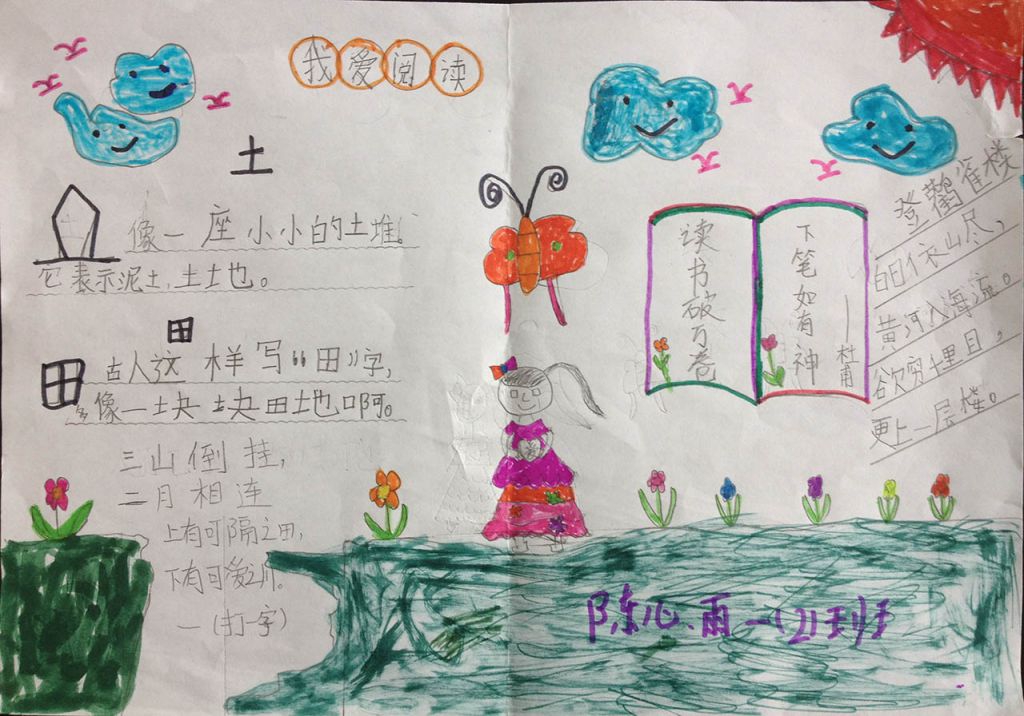 我爱阅读
土
像一座小小的土堆。
它表示泥土,土土也。
田
田 古人这样写“田”字,
多像一块块田地啊。
三山倒挂,
二月相连
上有可隔之田,
下有可爱之川。
一(打一字)
读书破万卷
下笔如有神
——杜甫
登鹳雀楼
白日依山尽,
黄河入海流。
欲穷千里目,
更上一层楼。
陈心雨 一(2)班